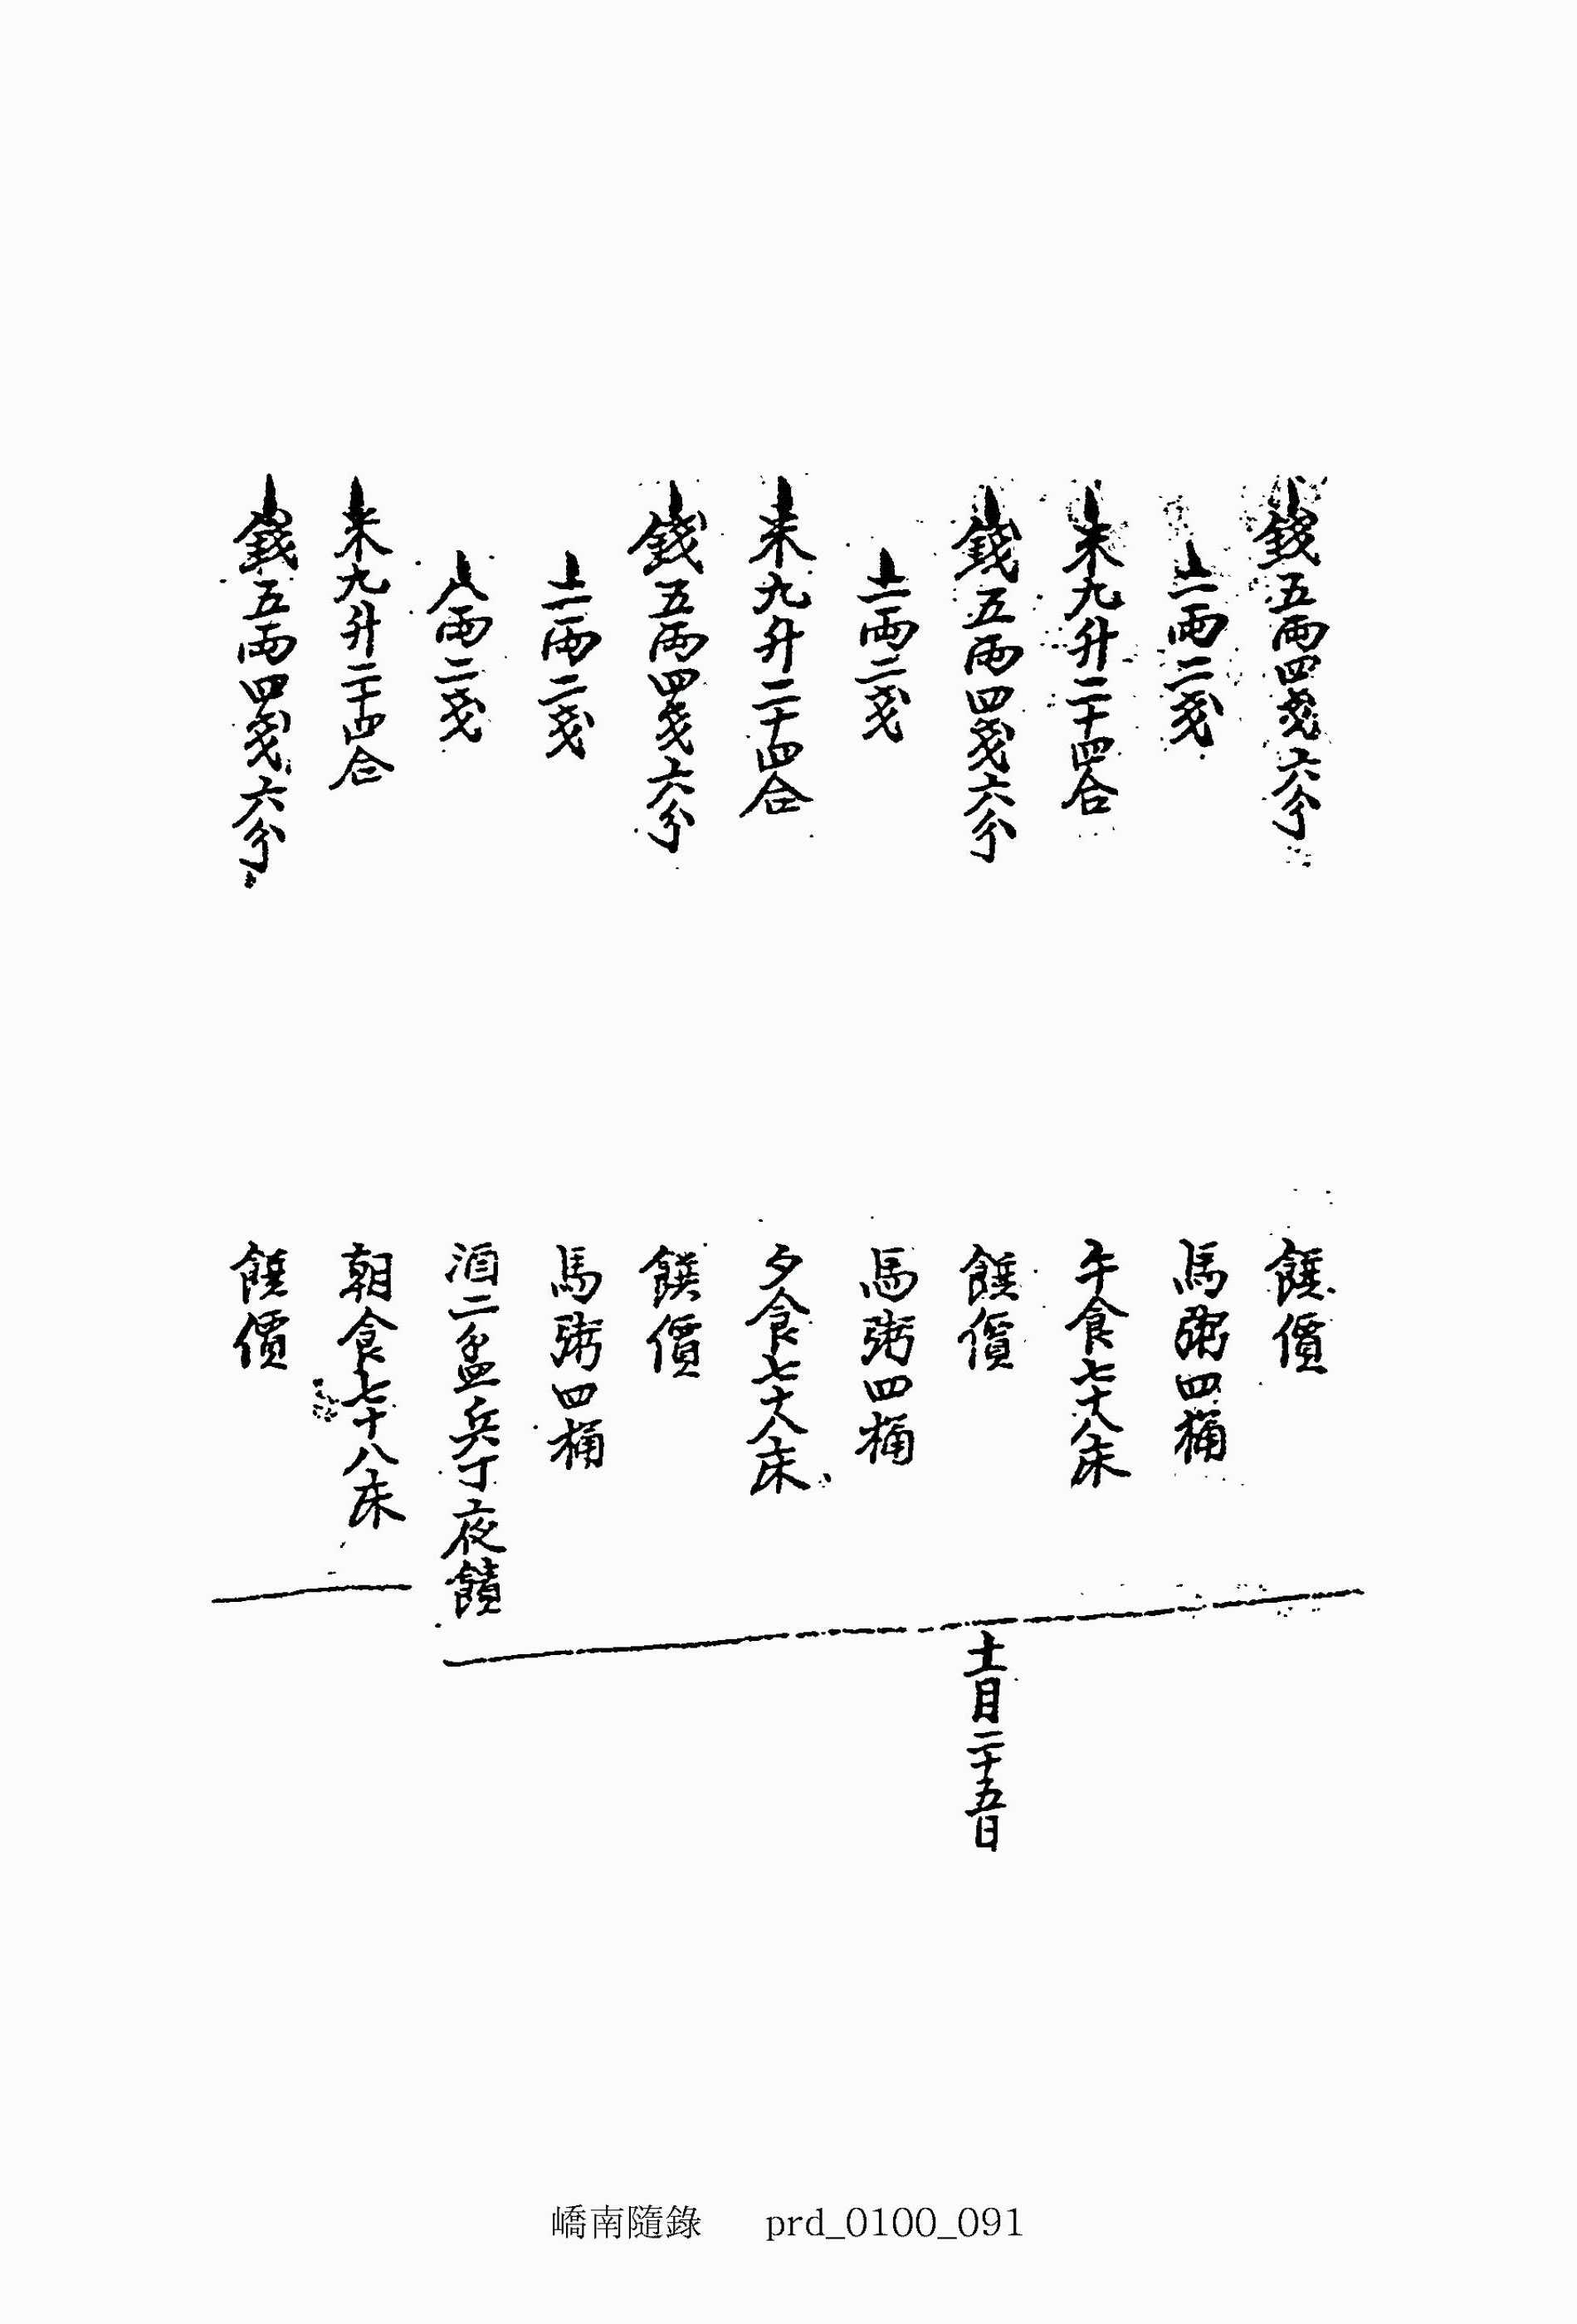 錢五兩四戔六分 饌價
二兩二戔 馬粥四桶
米九升二十四合 午食七十八床
錢五兩四戔六分 饌價 十一月二十五日
二兩二戔 馬粥四桶
米九升二十四合 夕食七十八床
錢五兩四戔六分 饌價
二兩二戔 馬粥四桶
八兩二戔 酒二盆兵丁夜饋
米九升二十四合 朝食七十八床
錢五兩四戔六分 饌價
嶠南隨錄 prd_0100_091